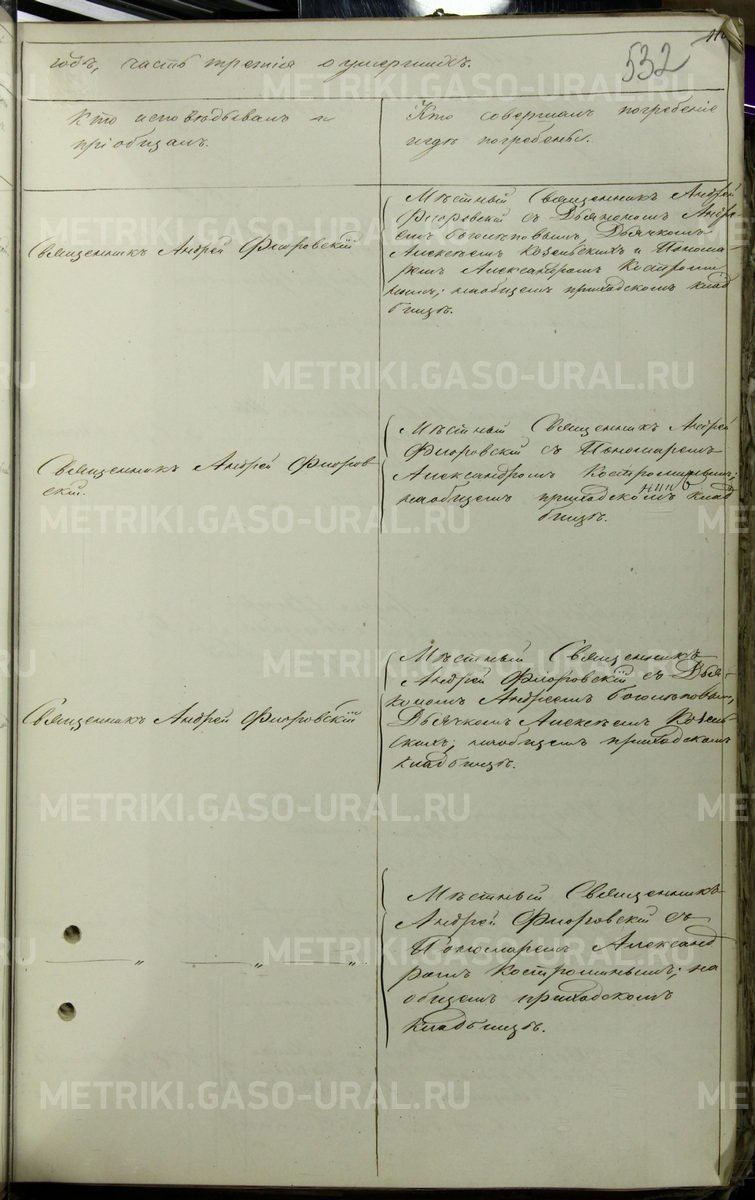 532
годъ, часть третія о умершихъ.
Кто исповѣдывалъ и
пріобщалъ.
Кто совершалъ погребеніе
и гдѣ погребены.
Священникъ Андрей Флоровскій
Мѣстный Священникъ Андрей
Флоровскій съ Дьякономъ Андре
емъ Боголѣповымъ, Дьячкомъ
Алексѣемъ Козельскихъ и Понома
ремъ Александромъ Костроми
нымъ; на общемъ приходскомъ клад
бищѣ.
Священникъ Андрей Флоров
скій.
Мѣстный Священникъ Андрей
Флоровскій съ Пономаремъ
Александромъ Костроминымъ;
на общемъ приходскомъ клад
бищѣ.
Священникъ Андрей Флоровскій
Мѣстный Священникъ
Андрей Флоровскій съ Дья-
кономъ Андреемъ Боголѣповымъ,
Дьячкомъ Алексѣемъ Козель
скихъ; на общемъ приходскомъ
кладбищѣ.
— „ — „ — „
Мѣстный Священникъ
Андрей Флоровскій съ
Пономаремъ Александ
ромъ Костроминымъ; на
общемъ приходскомъ
кладбищѣ.
METRIKI.GASO-URAL.RU